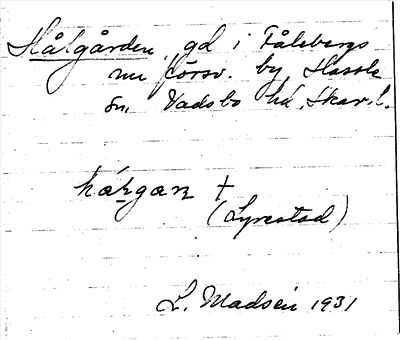 Hålgården, gd i Fåleberg
nu försv. by, Hassle
sn, Vadsbo hd, Skar. l.
hålgan †
(Lyrestad)
L. Madsén 1931